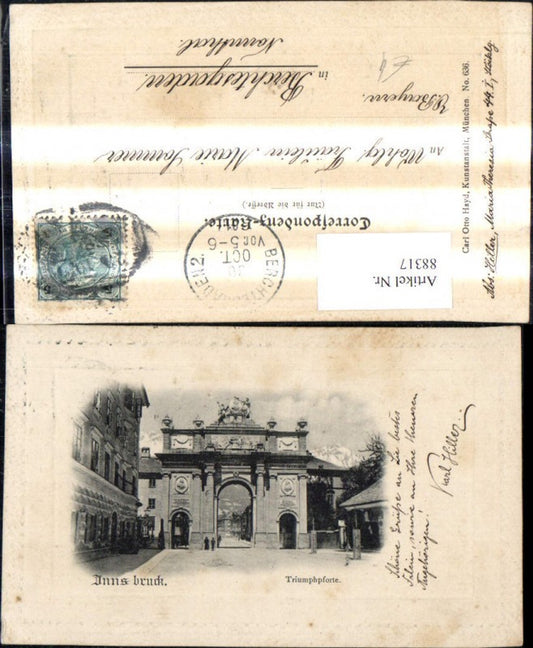 Correspondenz-Karte.
(Nur für die Adresse.)
An Wohlg. Fräulein Marie Sommer
in Berchtesgaden.
Nonnthal.
Bayern.
Carl Otto Hayd, Kunstanstalt, München No. 636.
Abs. Hiller, Maria Theresia
Artikel Nr.
88317
BERCHTESGADEN 2.
30
OCT.
VOR 5-6
Innsbruck.
Triumphpforte.
Schöne Grüße an Sie bestes
Fräulein, sowie an Ihre theueren
Angehörigen!
Karl Hiller.